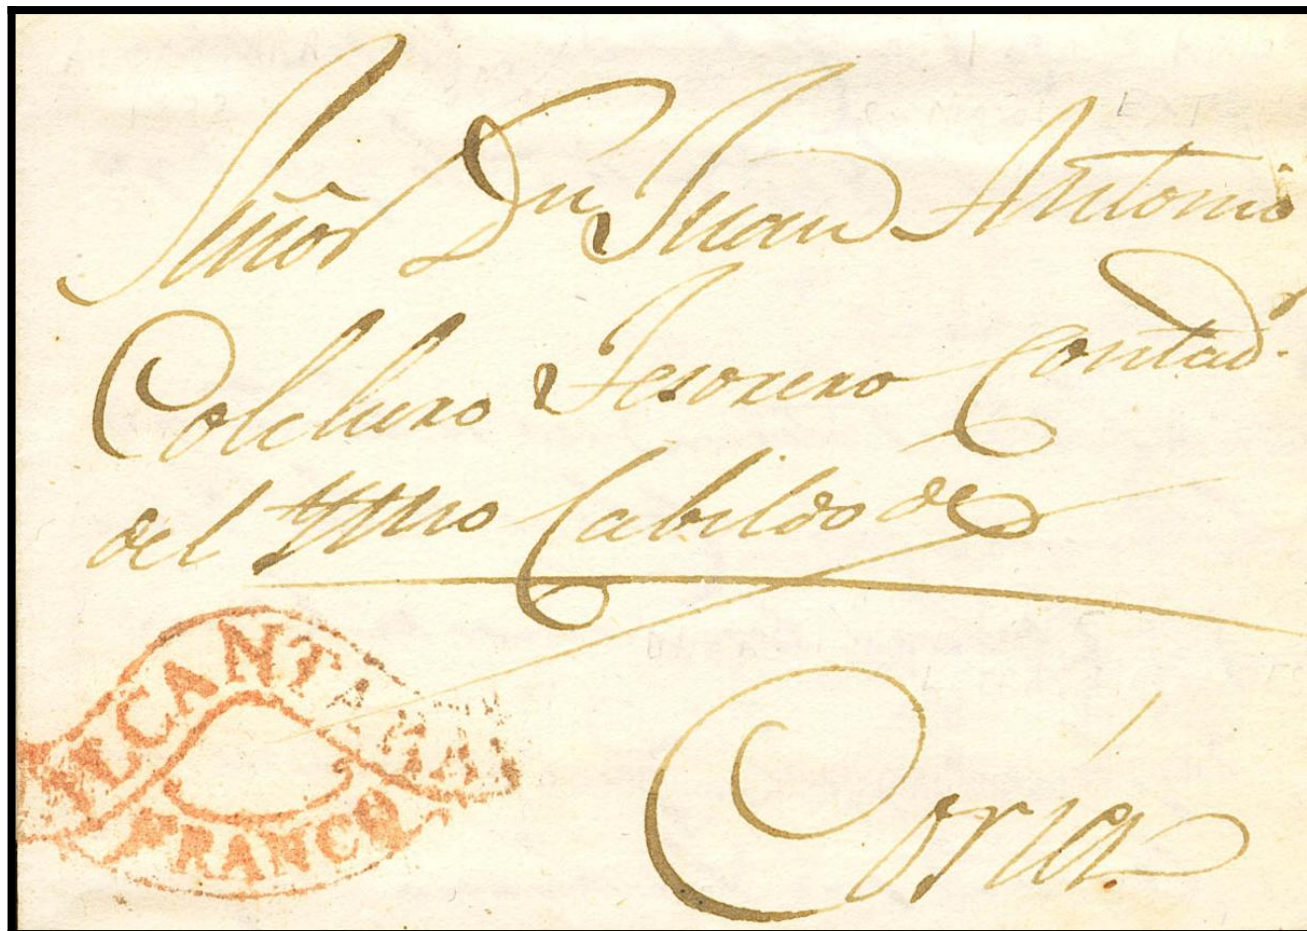 Señor Dn Juan Antonio
Colchero Tesorero Contador.
del Yllmo Cabildo de
Coria.
ALCANTARA
FRANCO